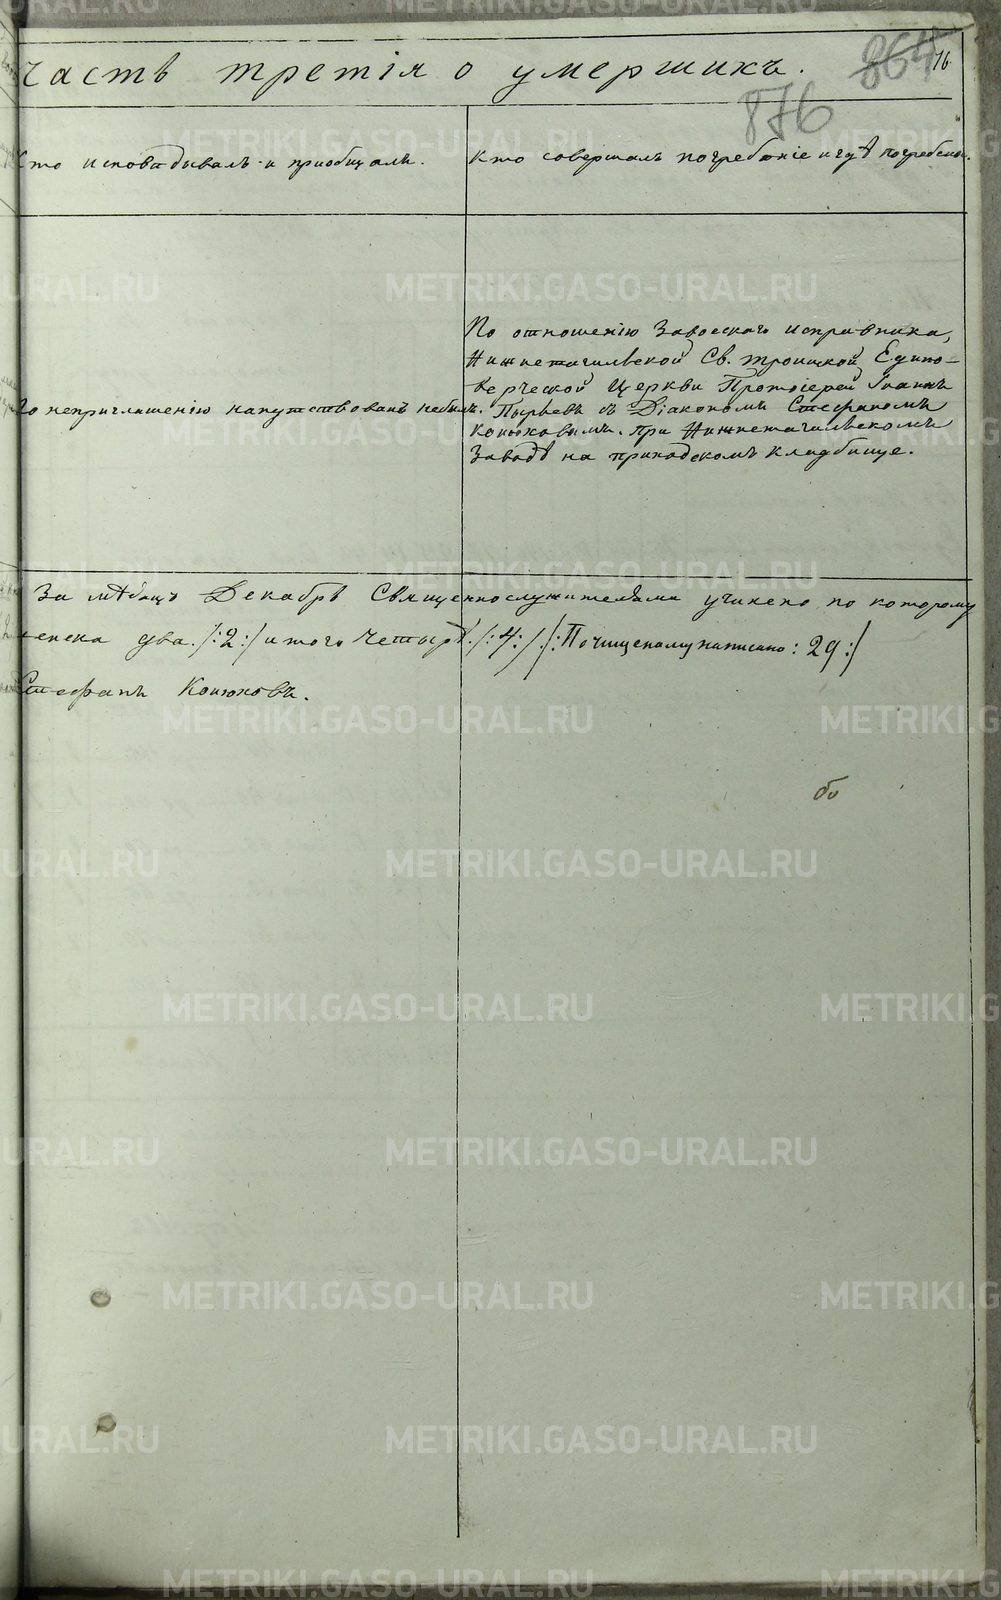 Часть третія о умершихъ.
864
76
876
Кто исповѣдывалъ и пріобщалъ.
Кто совершалъ погребеніе и гдѣ погребены.
По отношенію Заводскаго исправника,
Нижнетагильской Св. Троицкой Едино-
верческой Церкви Протоіерей Іоаннъ
Пырьевъ съ Діакономъ Стефаномъ
Конюховымъ. при Нижнетагильскомъ
Заводѣ на приходскомъ кладбище.
По неприглашенію напутствованъ небылъ.
За мѣсяцъ Декабрь Священнослужителями учинено, по которому
женска два /:2:/ итого Четыре /:4:/ /:Почищеному написано: 29:/
Стефанъ Конюховъ.
METRIKI.GASO-URAL.RU